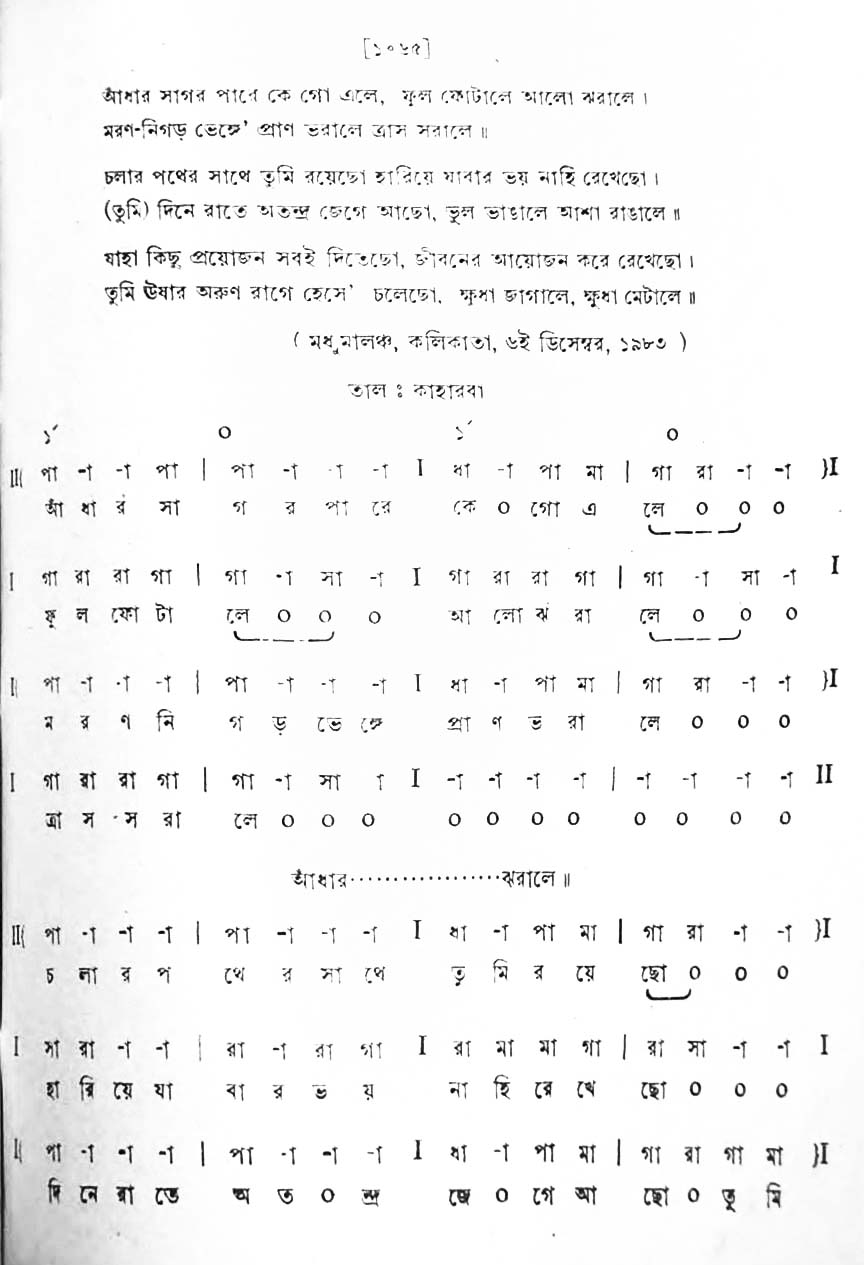 [১০৬৫]
আঁধার সাগর পারে কে গো এলে, ফুল ফোটালে আলো ঝরালে।
মরণ-নিগড় ভেঙ্গে' প্রাণ ভরালে ত্রাস সরালে॥
চলার পথের সাথে তুমি রয়েছো হারিয়ে যাবার ভয় নাহি রেখেছো।
(তুমি) দিনে রাতে অতন্দ্র জেগে আছো, ভুল ভাঙালে আশা রাঙালে॥
যাহা কিছু প্রয়োজন সবই দিতেছো, জীবনের আয়োজন করে রেখেছো।
তুমি ঊষার অরুণ রাগে হেসে' চলেছো, ক্ষুধা জাগালে, ক্ষুধা মেটালে॥
( মধুমালঞ্চ, কলিকাতা, ৬ই ডিসেম্বর, ১৯৮৩ )
তাল ঃ কাহারবা
১´ ০ ১´ ০
II{ পা -া -া পা | পা -া -া -া I ধা -া পা মা | গা রা -া -া }I
আঁ ধা র সা গ র পা রে কে ০ গো এ লে ০ ০ ০
I গা রা রা গা | গা -া সা -া I গা রা রা গা | গা -া সা -া I
ফু ল ফো টা লে ০ ০ ০ আ লো ঝ রা লে ০ ০ ০
I{ পা -া -া -া | পা -া -া -া I ধা -া পা মা | গা রা -া -া }I
ম র ণ নি গ ড় ভে ঙ্গে প্রা ণ ভ রা লে ০ ০ ০
I গা রা রা গা | গা -া সা া I -া -া -া -া | -া -া -া -া II
ত্রা স স রা লে ০ ০ ০ ০ ০ ০ ০ ০ ০ ০ ০
আঁধার··················ঝরালে॥
II{ পা -া -া -া | পা -া -া -া I ধা -া পা মা | গা রা -া -া }I
চ লা র প থে র সা থে তু মি র য়ে ছো ০ ০ ০
I সা রা -া -া | রা -া রা গা I রা মা মা গা | রা সা -া -া I
হা রি য়ে যা বা র ভ য় না হি রে খে ছো ০ ০ ০
I{ পা -া -া -া | পা -া -া -া I ধা -া পা মা | গা রা গা মা }I
দি নে রা তে অ ত ০ ন্দ্র জে ০ গে আ ছো ০ তু মি